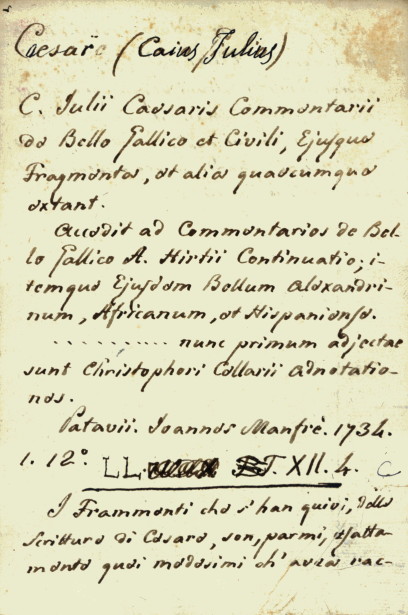 Caesar (Caius Julius)
C. Julii Caesaris Commentarii
de Bello Gallico et Civili, Ejusque
Fragmenta, et alia quaecumque
extant.
Accedit ad Commentarios de Bel-
lo Gallico A. Hirtii Continuatio; i-
temque Ejusdem Bellum Alexandri-
num, Africanum, et Hispaniense.
.......... nunc primum adjectae
sunt Christophori Cellarii adnotatio-
nes.
Patavii. Joannes Manfrè. 1734.
1. 12.° LL. XII. 4. C
I Frammenti che s'han quivi, delle
scritture di Cesare, son, parmi, esatta-
mente quei medesimi ch' avea rac-